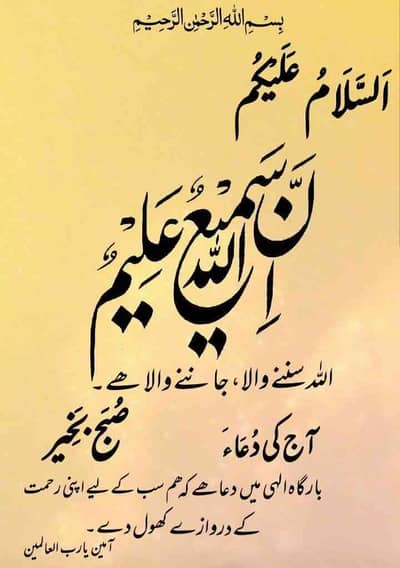 بِسْمِ اللهِ الرَّحْمٰنِ الرَّحِيْمِ
اَلسَّلَامُ عَلَيْكُم
اِنَّ اللّٰهَ سَمِيْعٌ عَلِيْمٌ
اللہ سننے والا، جاننے والا ھے۔
آج کی دُعَاءَ صُبَح بَخِیر
بارگاہ الہی میں دعا ھے کہ ھم سب کے لیے اپنی رحمت
کے دروازے کھول دے۔
آمین یا رب العالمین